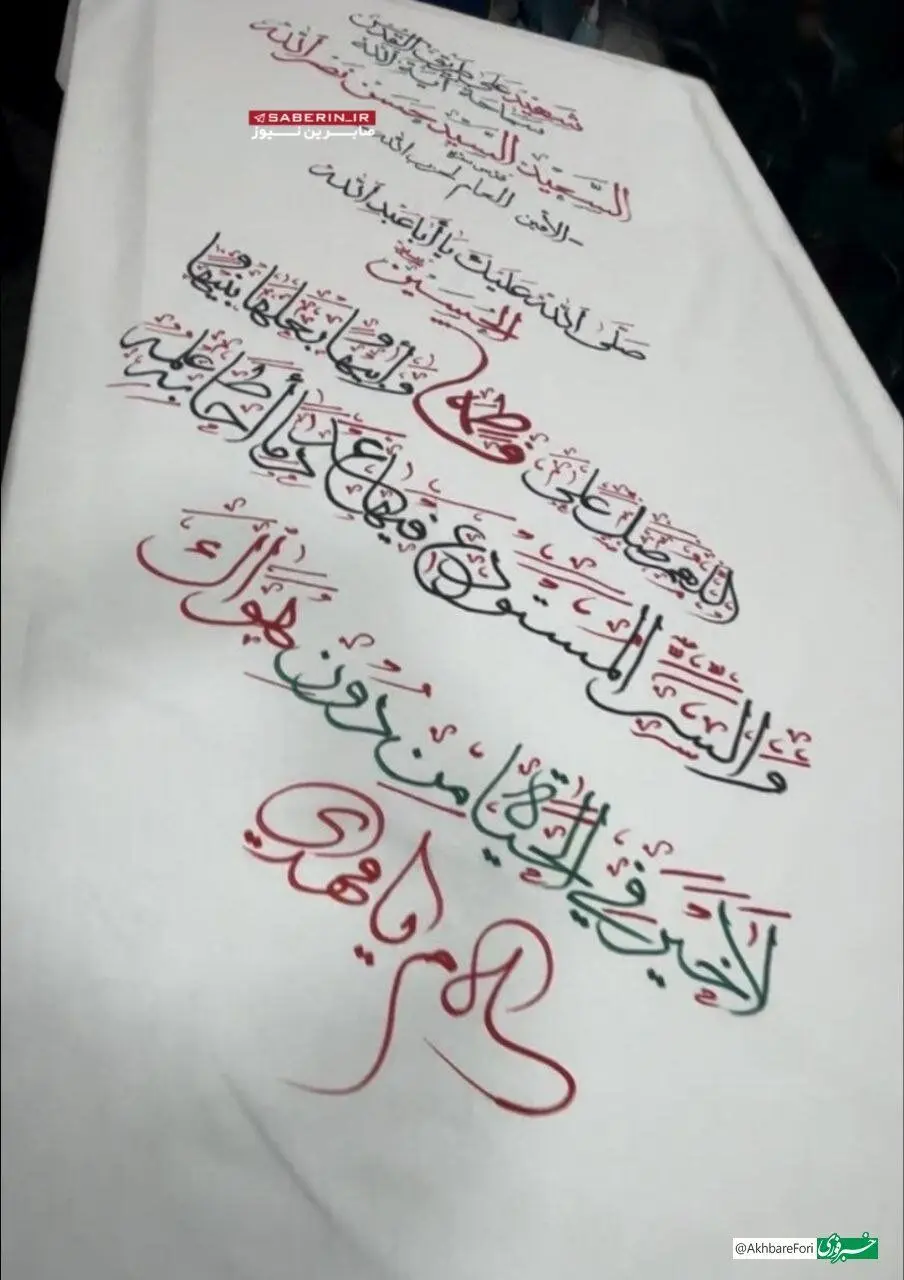 شهيد على طريق القدس
سماحة آية الله
السعيد السيد حسن نصر الله
قدس سره
الأمين العام لحزب الله
SABERIN_IR
صابرین نیوز
صلى الله عليك يا أبا عبد الله
الحسين
اللهم صل على فاطمة وأبيها وبعلها وبنيها
والسر المستودع فيها عدد ما أحاط به علمك
لا خير في الحياة من دون هواك
يا مهدي
@AkhbareFori
خبرفوری